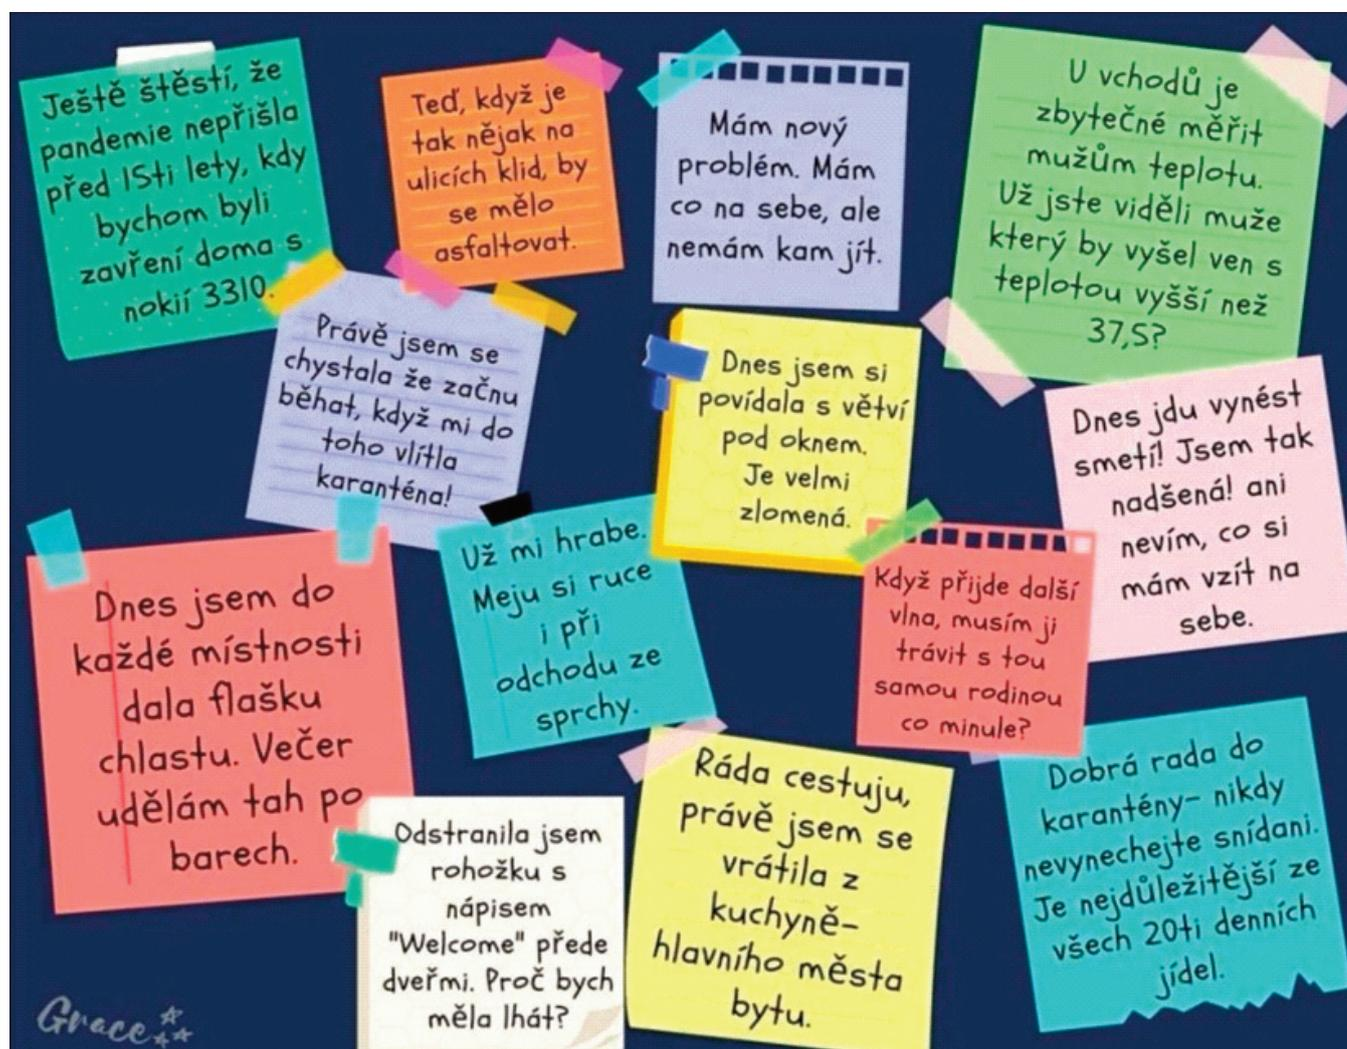 Ještě štěstí, že
pandemie nepřišla
před 15ti lety, kdy
bychom byli
zavření doma s
nokií 3310.
Teď, když je
tak nějak na
ulicích klid, by
se mělo
asfaltovat.
Mám nový
problém. Mám
co na sebe, ale
nemám kam jít.
U vchodů je
zbytečné měřit
mužům teplotu.
Už jste viděli muže
který by vyšel ven s
teplotou vyšší než
37,5?
Právě jsem se
chystala že začnu
běhat, když mi do
toho vlítla
karanténa!
Dnes jsem si
povídala s větví
pod oknem.
Je velmi
zlomená.
Dnes jdu vynést
smetí! Jsem tak
nadšená! ani
nevím, co si
mám vzít na
sebe.
Dnes jsem do
každé místnosti
dala flašku
chlastu. Večer
udělám tah po
barech.
Už mi hrabe.
Meju si ruce
i při
odchodu ze
sprchy.
Když přijde další
vlna, musím ji
trávit s tou
samou rodinou
co minule?
Odstranila jsem
rohožku s
nápisem
"Welcome" přede
dveřmi. Proč bych
měla lhát?
Ráda cestuju,
právě jsem se
vrátila z
kuchyně-
hlavního města
bytu.
Dobrá rada do
karantény- nikdy
nevynechejte snídani.
Je nejdůležitější ze
všech 20ti denních
jídel.
Grace